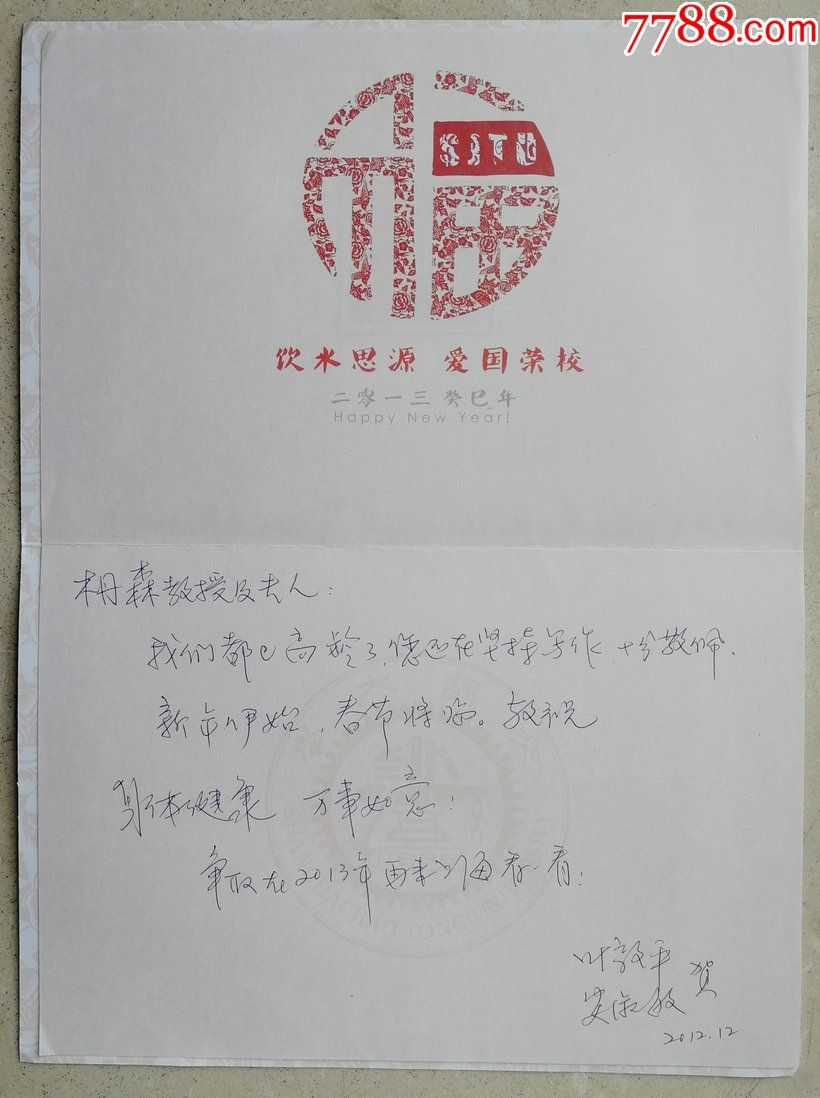 7788.com
福
SJTU
饮水思源 爱国荣校
二零一三 癸巳年
Happy New Year!
柟森教授及夫人:
我们都已高龄了,您还在坚持写作,十分敬佩.
新年伊始,春节将临。敬祝
身体健康 万事如意!
争取在2013年再来上海看看!
叶敬平
贺
2012.12
SHANGHAI JIAO TONG UNIVERSITY